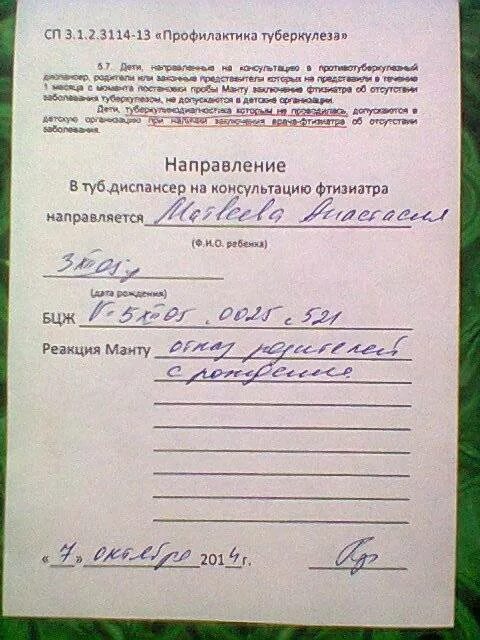 СП 3.1.2.3114-13 «Профилактика туберкулеза»
6.7. Дети, направленные на консультацию в противотуберкулезный
диспансер, родители или законные представители которых не представили в течение
1 месяца с момента постановки пробы Манту заключение фтизиатра об отсутствии
заболевания туберкулезом, не допускаются в детские организации.
Дети, туберкулинодиагностика которым не проводилась, допускаются в
детскую организацию при наличии заключения врача-фтизиатра об отсутствии
заболевания.
Направление
В туб.диспансер на консультацию фтизиатра
направляется Матвеева Анастасия
(Ф.И.О. ребенка)
3 XII 05 г
(дата рождения)
БЦЖ V- 5 XII 05 . 0025 с 521
Реакция Манту отказ родителей
с рождения
« 7 » октября 2014 г.